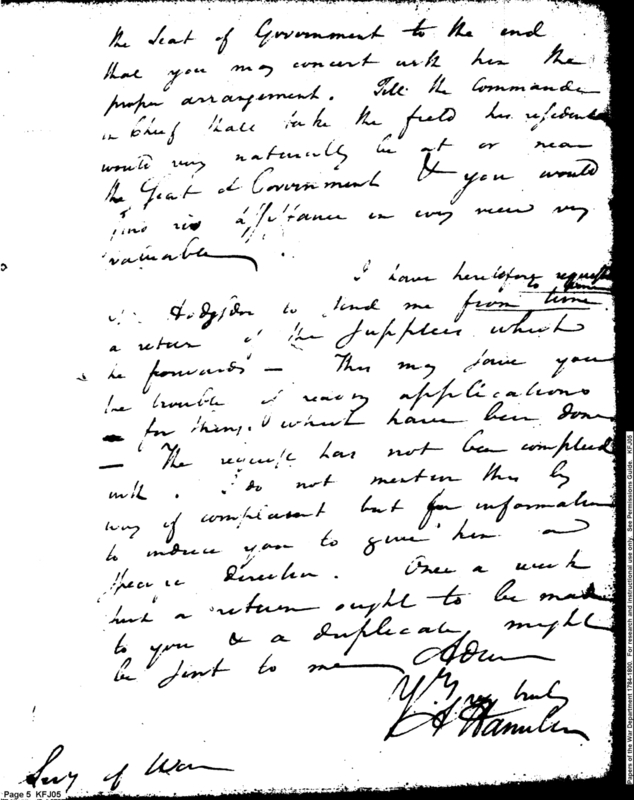 the Seat of Government to the end
that you may concert with him the
proper arrangement. Till the Commander
in Chief shall take the field his residence
would very naturally be at or near
the Seat of Government & you would
find his assistance in every view very
valuable.
I have heretofore requested
Mr Hodgsdon to send me from time
to time
a return of the supplies which
he forwards — This may save you
the trouble of applications
for things which have been done
— The request has not been complied
with. I do not mention this by
way of complaint but for information
to induce you to give him a
specific direction. Once a week
such a return ought to be made
to you & a duplicate might
be sent to me
Adieu
Yrs truly
A Hamilton
Secy of War
Page 5 KFJ05
Papers of the War Department 1784-1800. For research and instructional use only. See Permissions Guide. KFJ05